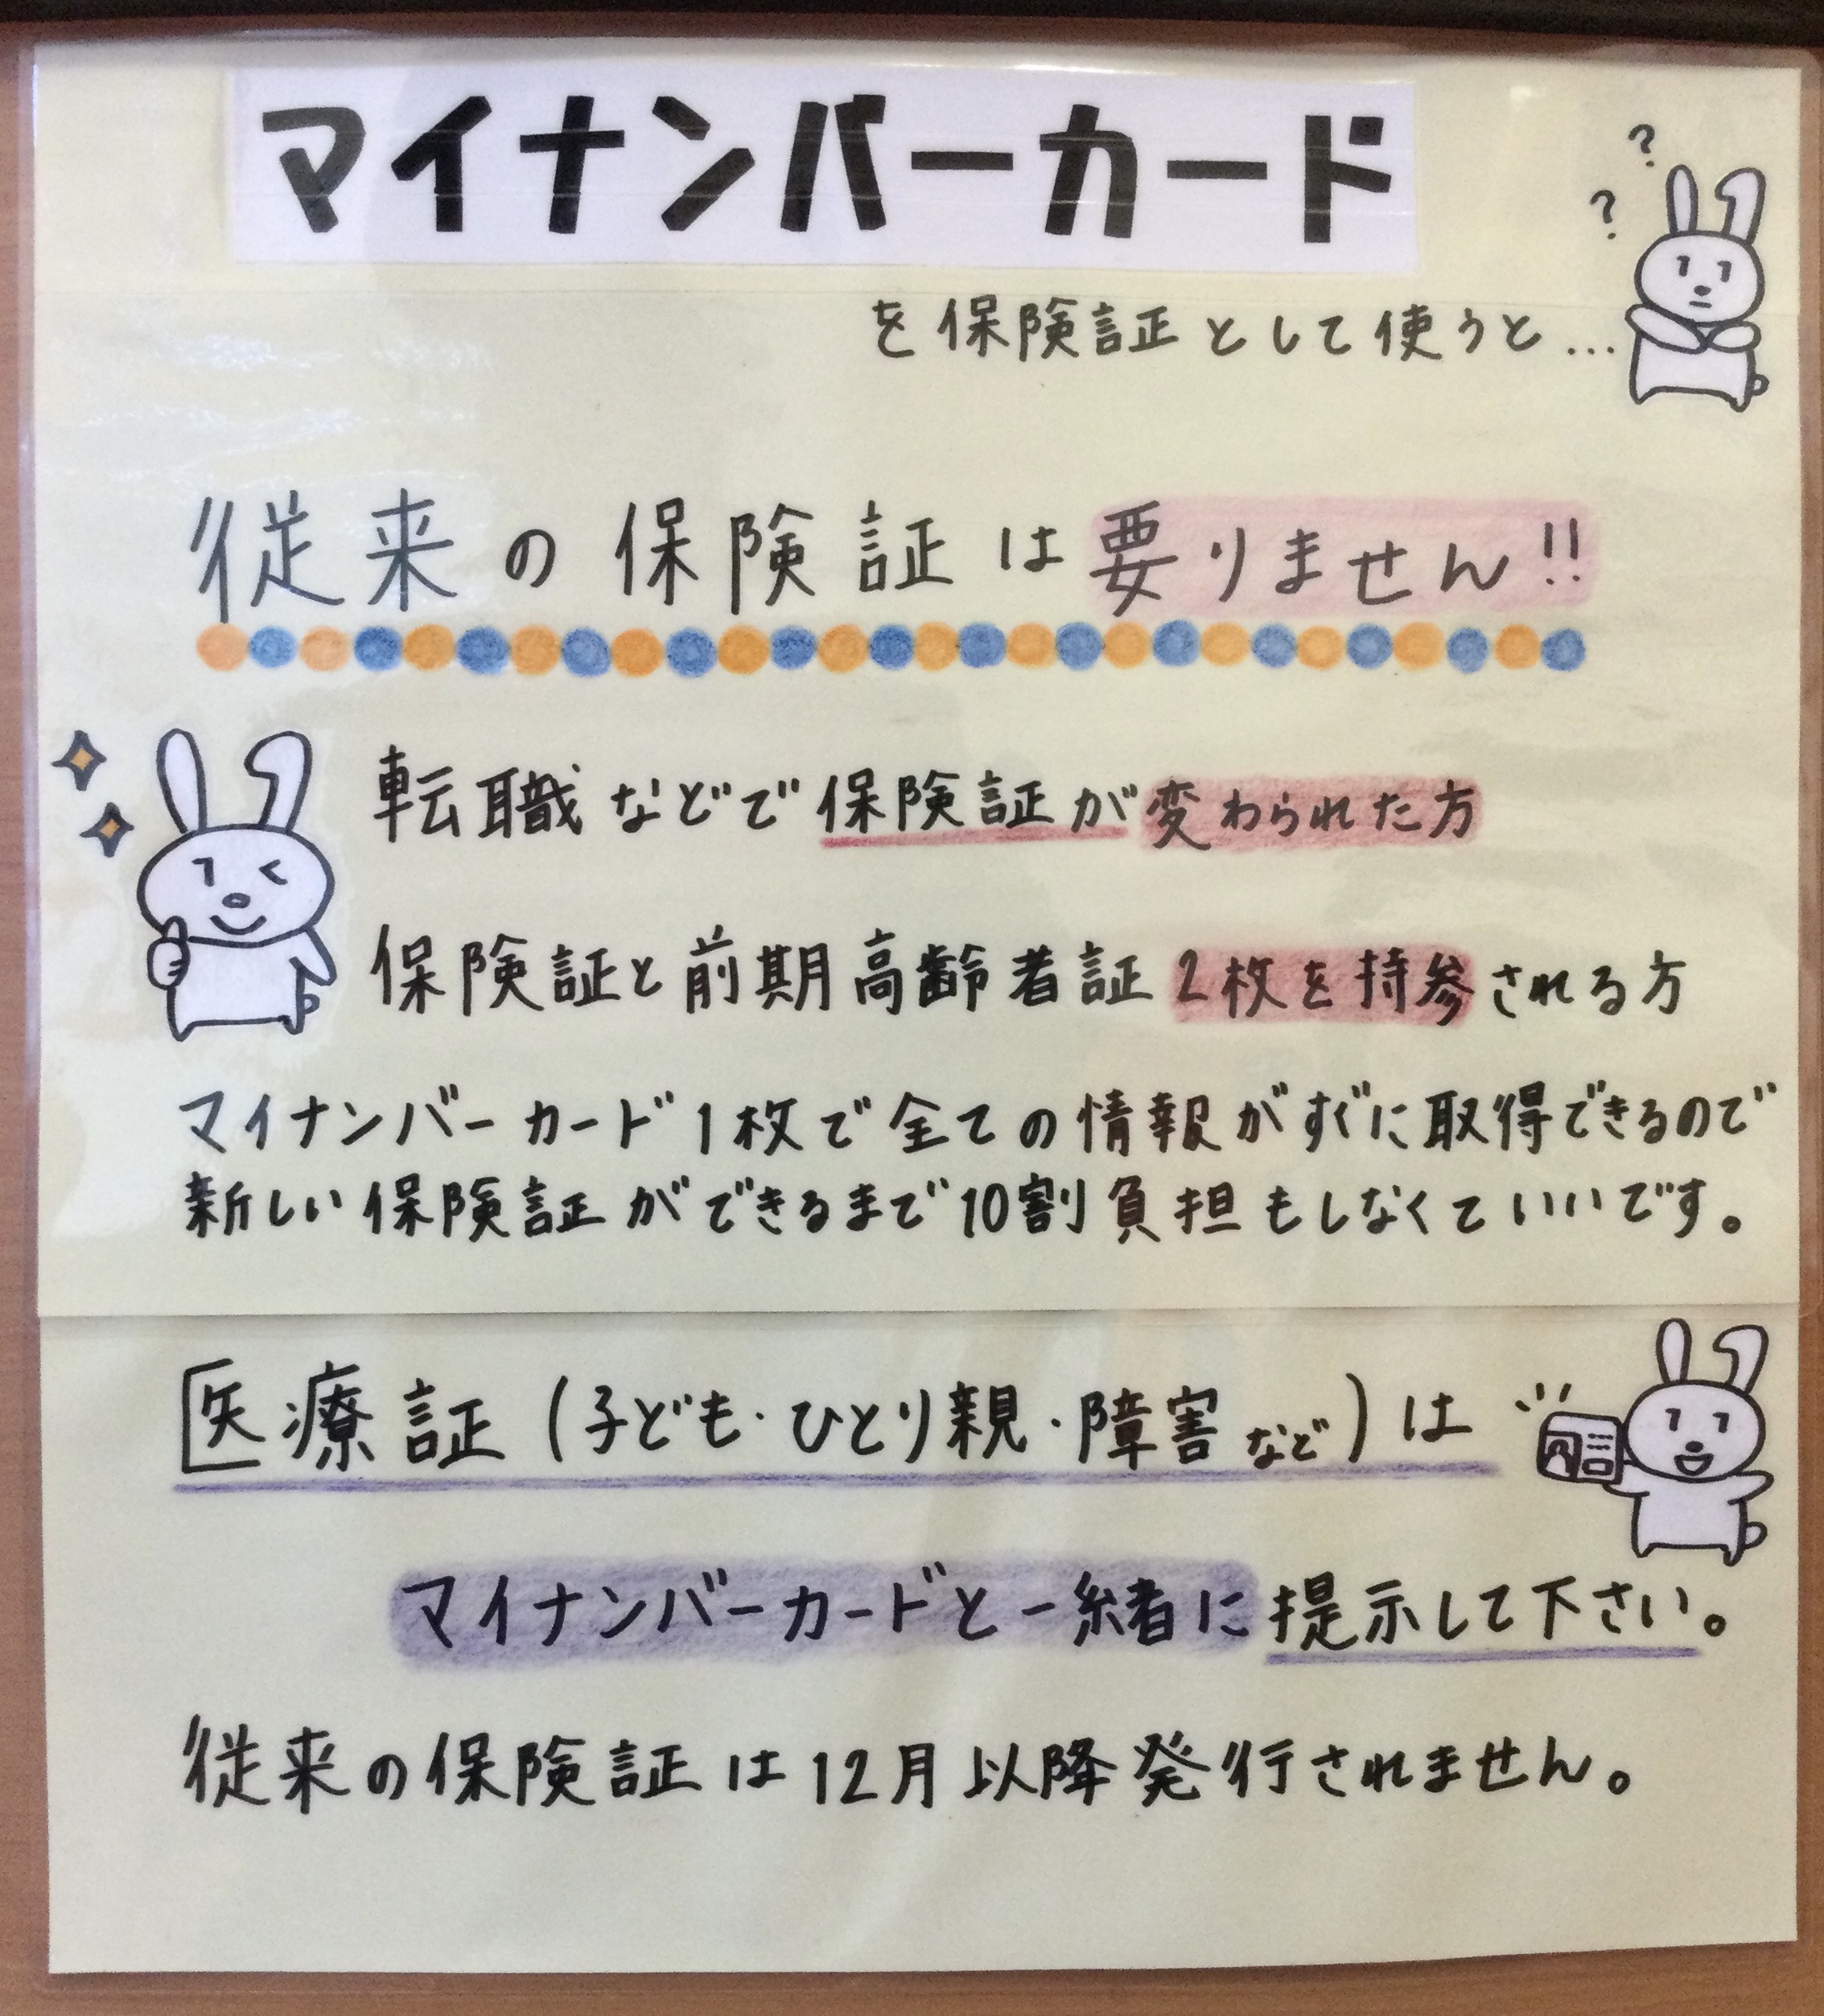 マイナンバーカード
??
を保険証として使うと...
従来の保険証は要りません!!
転職などで保険証が変わられた方
保険証と前期高齢者証2枚を持参される方
マイナンバーカード1枚で全ての情報がすぐに取得できるので
新しい保険証ができるまで10割負担もしなくていいです。
医療証(子ども・ひとり親・障害など)は
マイナンバーカードと一緒に提示して下さい。
従来の保険証は12月以降発行されません。